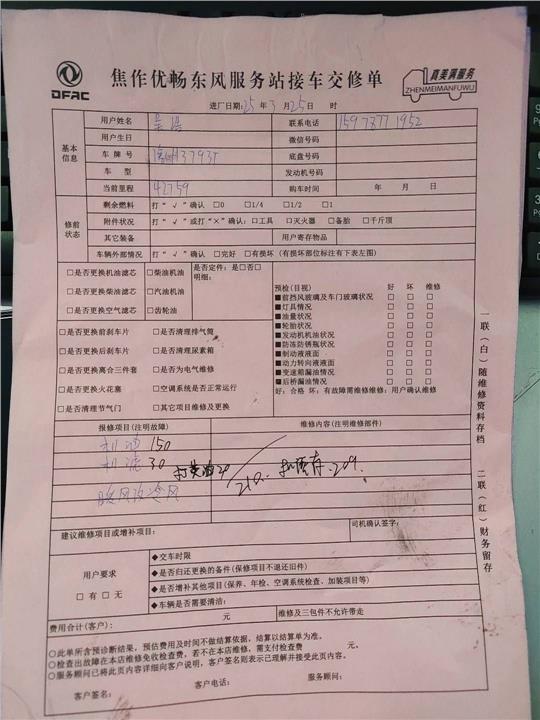 DFAC
焦作优畅东风服务站接车交修单
真美满服务
ZHENMEIMANFUWU
进厂日期:25年3月25日 时
基本信息
用户姓名 联系电话
用户生日 微信号码
车牌号 底盘号码
车型 发动机号码
当前里程 42759 购车时间 年 月 日
修前状态
剩余燃料 打“√”确认 □0 □1/4 □1/2 □1
附件状况 打“√”或打“×”确认:□工具 □灭火器 □备胎 □千斤顶
其它装备 用户寄存物品
车辆外部情况 打“√”确认 □完好 □有损坏(有损坏部位标注有下表左图)
□是否更换机油滤芯 □柴油机油 是否定件:是□否□
明细:
□是否更换柴油滤芯 □汽油机油
□是否更换空气滤芯 □齿轮油
□是否更换前刹车片 □是否清理排气筒
□是否更换后刹车片 □是否清理尿素箱
□是否更换离合三件套 □是否为电气维修
□是否更换火花塞 □空调系统是否正常运行
□是否清理节气门 □其它项目维修及更换
预检(目视) 好 坏 维修
■前挡风玻璃及车门玻璃状况 □ □ □
■灯具情况 □ □ □
■油量状况 □ □ □
■轮胎状况 □ □ □
■发动机机油状况 □ □ □
■防冻防锈瓶状况 □ □ □
■制动液液面 □ □ □
■动力转向液液面 □ □ □
■变速箱漏油情况 □ □ □
■后桥漏油情况 □ □ □
好:合格 坏:有故障需维修维修:用户确认维修
报修项目(注明故障) 维修内容(注明维修部件)
机油 150
机滤 30 打黄油20 210.
暖风改冷风
建议维修项目或增补项目: 司机确认签字:
用户要求
□有 □无
◆交车时限
◆是否归还更换的备件(保修项目不退还旧件)
◆是否增补其他项目(保养、年检、空调系统检查、加装项目等)
◆车辆是否需要清洁:
费用合计(客户): 元 维修及三包件不允许带走
○此单所含预诊断结果,预估费用及时间不做结算依据,结算以结算单为准。
○检查出故障在本店维修免收检查费,若不在本店维修,需支付检查费 元。
○服务顾问已将此页内容详细向客户说明,客户签名则表示已理解并接受此页内容。
客户签名: 客户电话: 服务顾问:
一联(白)随维修资料存档 二联(红)财务留存